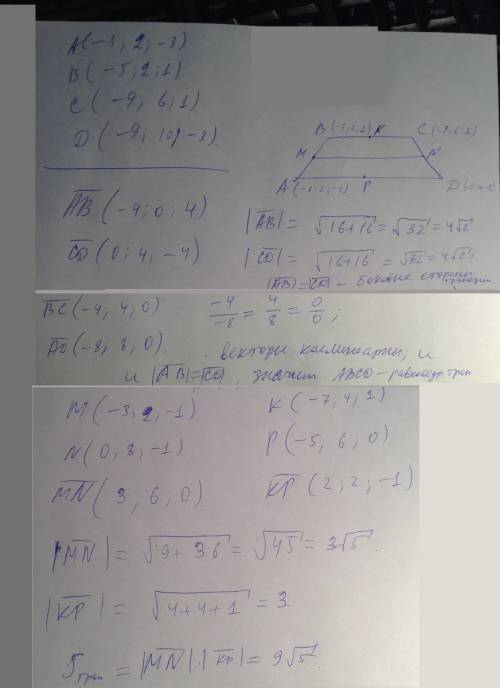 A(-1; 2; -3)
B(-5; 2; 1)
C(-9; 6; 1)
D(-9; 10; -3).
AB (-4; 0; 4)
CD (0; 4; -4)
B(-5;2;1) K C(-9;6;1)
M N
A(-1;2;-3) P D
|AB| = √16+16 = √32 = 4√2
|CD| = √16+16 = √32 = 4√2;
|AB|=|CD| - боковые стороны трапеции.
BC(-4; 4; 0) -4/-8 = 4/8 = 0/0;
AD(-8; 8; 0). векторы коллинеарны; и
и |AB|=|CD|, значит ABCD-равнобедр трап
M(-3; 2; -1) K(-7; 4; 1)
N(0; 8; -1) P(-5; 6; 0)
MN(3; 6; 0) KP(2; 2; -1)
|MN| = √9+36 = √45 = 3√5.
|KP| = √4+4+1 = 3.
Sтрап = |MN|·|KP| = 9√5.